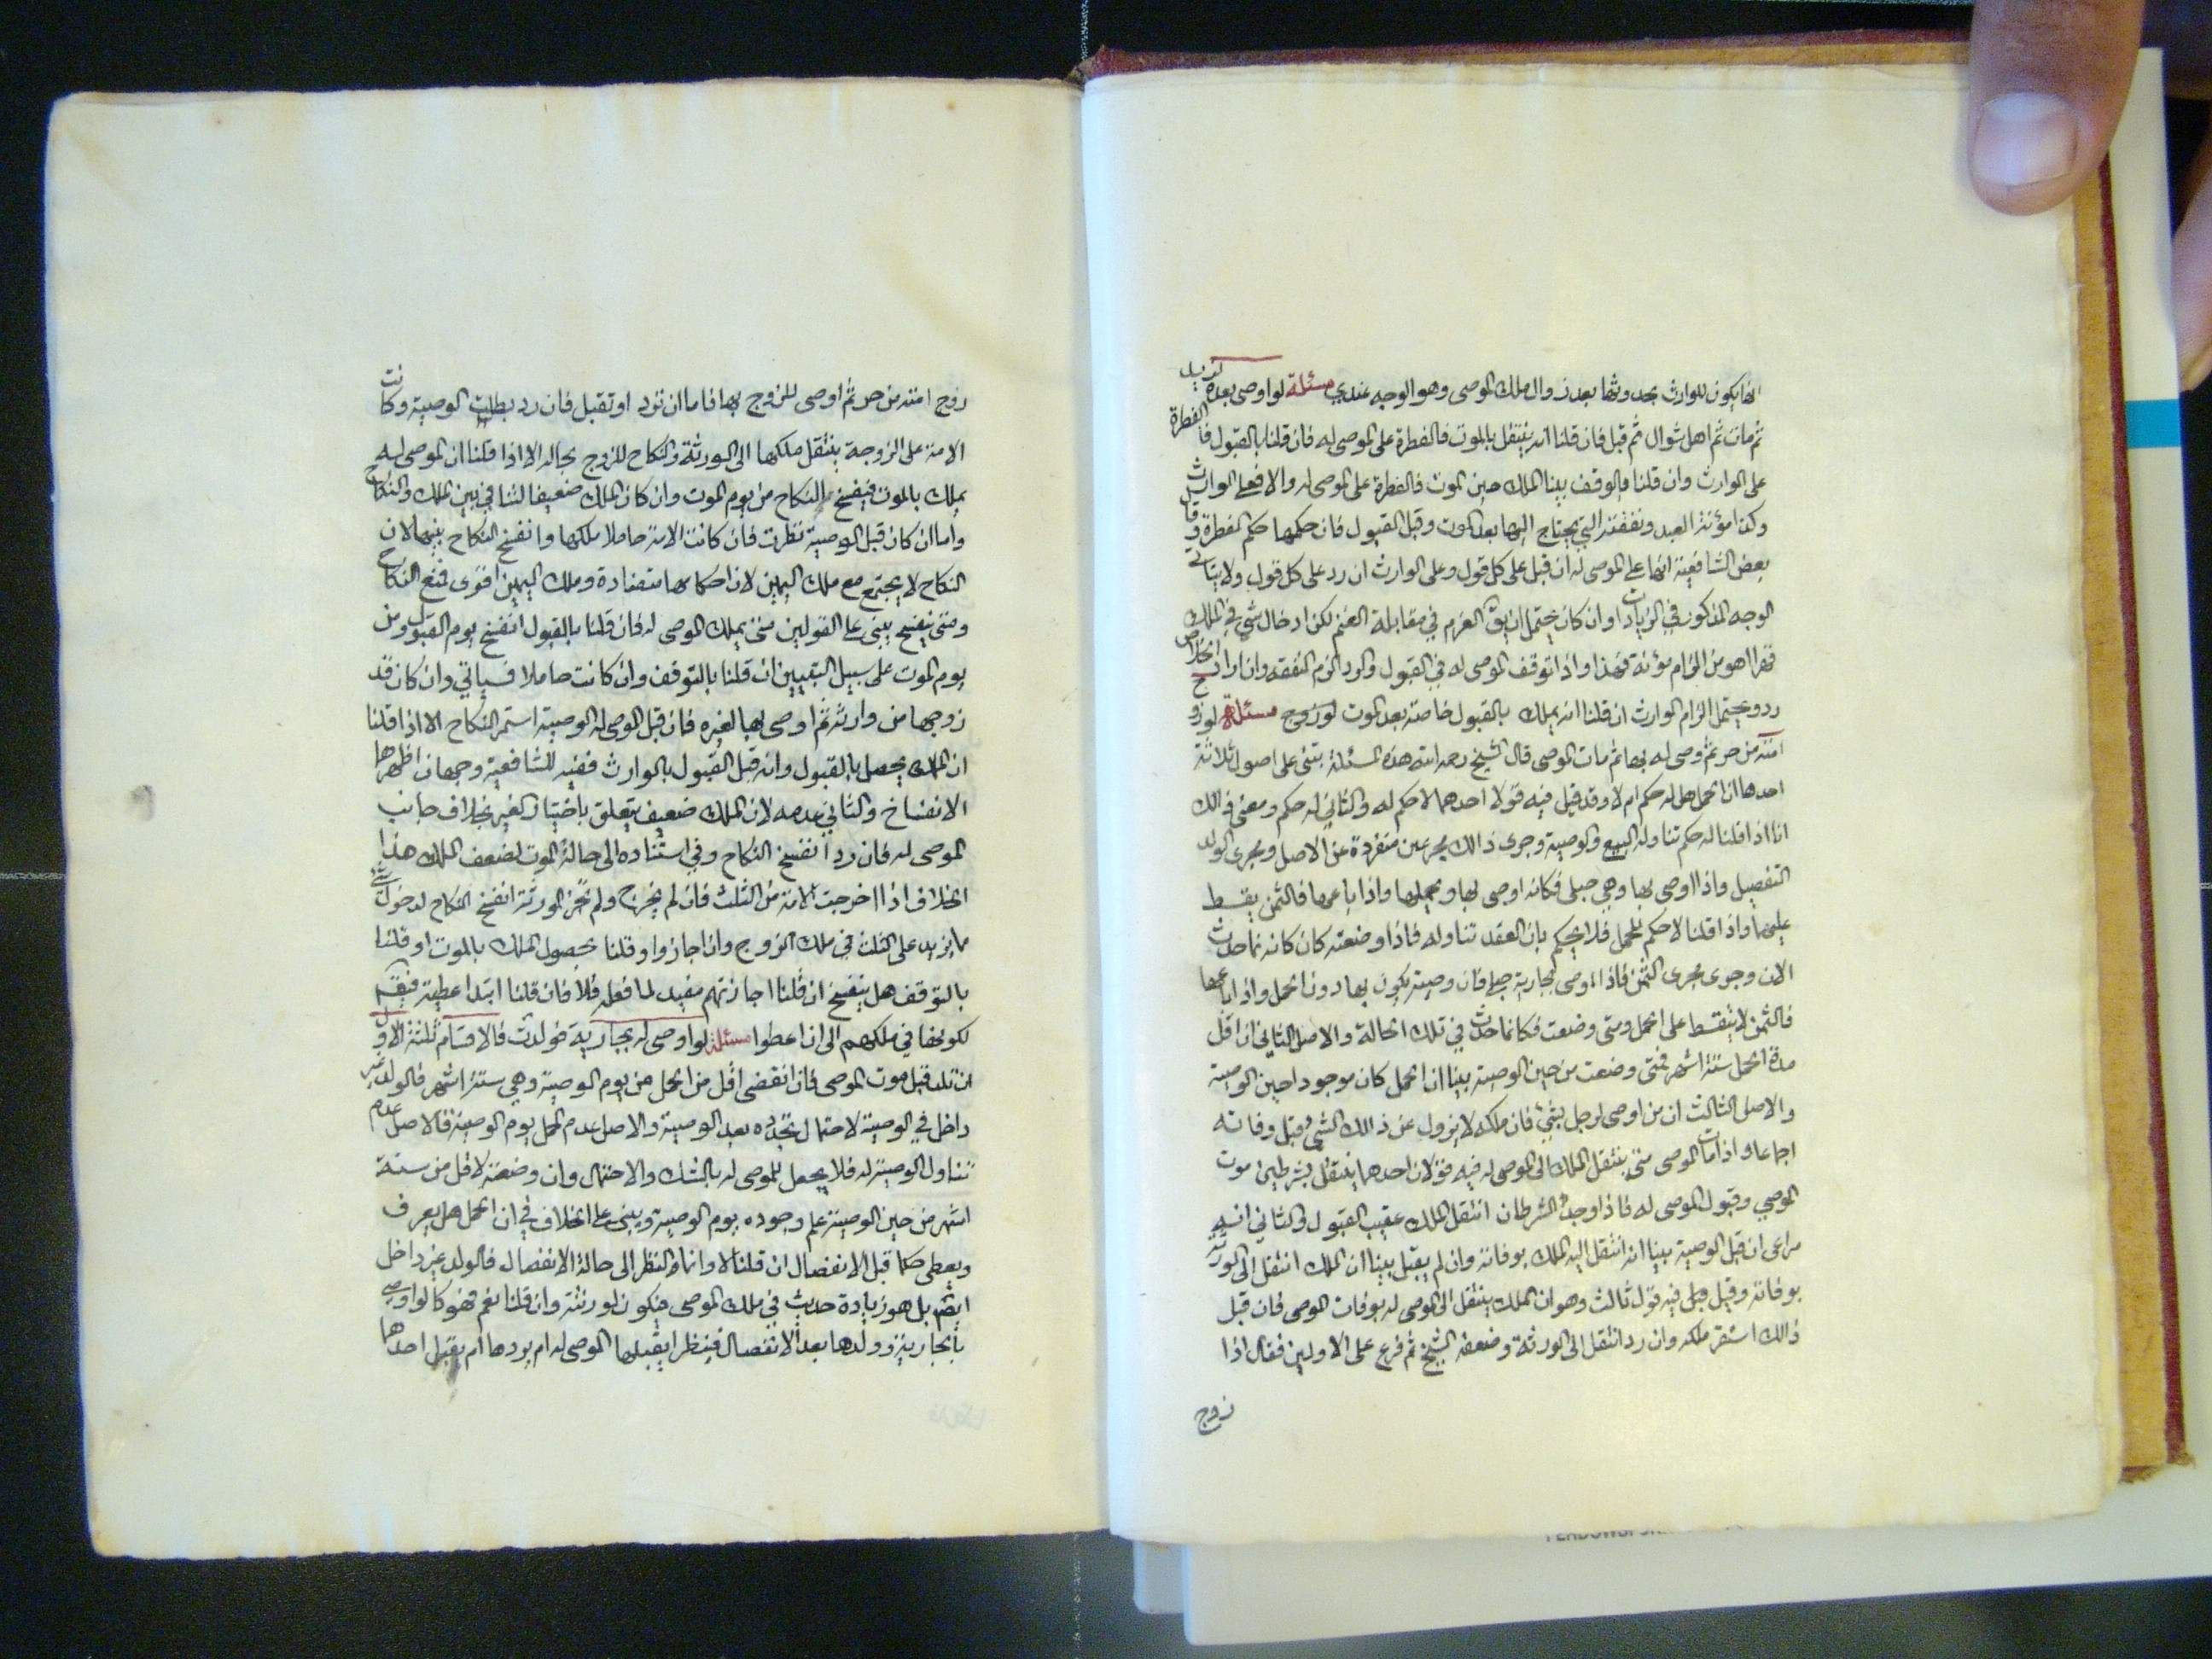 انها يكون للوارث بحدوثها بعد زوال ملك الموصى وهو الوجه عندي مسئلة لو اوصى بعبده لزيد
ثم مات ثم اهل شوال ثم قبل فان قلنا انه ينتقل بالموت فالفطرة على الموصى له فان قلنا بالقبول فالفطرة
على الوارث وان قلنا بالوقف بينا الملك حين الموت فالفطرة على الموصى له والا فعلى الوارث
وكذا مؤنة العبد ونفقته التي يحتاج اليها بعد الموت وقبل القبول فان حكمها حكم الفطرة وقال
بعض الشافعية انها على الموصى له ان قبل على كل قول وعلى الوارث ان رد على كل قول ولا يتاتى
الوجه المذكور في الزيادات وان كان يحتمل ان يق الغرم في مقابلة الغنم لكن ادخال شيء في الملك
قهرا اهون من الزام مؤنة فهذا واذا توقف الموصى له في القبول والرد الزم النفقة وان اراد الخلاص
رد ويحتمل الزام الوارث ان قلنا انه يملك بالقبول خاصة بعد الموت مسئلة لو زوج
امته من حر ثم وصى له بها ثم مات الموصى قال الشيخ رحمه الله هذه المسئلة تبتنى على اصول ثلاثة
احدها ان الحمل هل له حكم ام لا وقد قيل فيه قولا احدهما لا حكم له والثاني له حكم ومعنى ذالك
انا اذا قلنا له حكم تناوله البيع والوصية وجرى ذالك مجرى عين منفردة عن الاصل ومجرى الولد
المنفصل واذا اوصى بها وهي حبلى فكانه اوصى بها وبحملها واذا باعها فالثمن يقسط
عليهما واذا قلنا لا حكم للحمل فلا يحكم بان العقد تناوله فاذا وضعته كان كانه نما حدث
الان وجرى مجرى الثمن فاذا اوصى لجارية حبلى فان وصيته يكون بها دون الحمل واذا باعها
فالثمن لا يتقسط على الحمل ومتى وضعت فكانما حدث في تلك الحالة والاصل الثاني ان اقل
مدة الحمل ستة اشهر فمتى وضعت من حين الوصية بينا ان الحمل كان موجودا حين الوصية
والاصل الثالث ان من اوصى لرجل بشيء فان ملكه لا يزول عن ذالك الشيء قبل وفاته
اجماعا واذا مات الموصى متى ينتقل الملك الى الموصى له فيه قولان احدهما ينتقل بشرطين موت
الموصي وقبول الموصى له فاذا وجد الشرطان انتقل الملك عقيب القبول والثاني انه
مراعى ان قبل الوصية بينا انه انتقل اليه الملك بوفاته وان لم يقبل بينا ان الملك انتقل الى الورثة
بوفاته وقيل فيه قول ثالث وهو ان الملك ينتقل الى الموصى له بوفات الموصى فان قبل
ذالك استقر ملكه وان رد انتقل الى الورثة وضعفه الشيخ ثم فرع على الاولين فقال اذا
زوج
زوج امته من حر ثم اوصى للزوج بها فاما ان ترد او تقبل فان رد بطلت الوصية وكانت
الامة على الزوجية ينتقل ملكها الى الورثة والنكاح للزوج بحاله الا اذا قلنا ان الموصى له
يملك بالموت فينفسخ النكاح من يوم الموت وان كان الملك ضعيفا لتنافي بين الملك والنكاح
واما ان كان قبل الوصية نظرت فان كانت الامة حاملا ملكها وانفسخ النكاح بينهما لان
النكاح لا يجتمع مع ملك اليمين لان احكامهما متضادة وملك اليمين اقوى فمنع النكاح
ومتى ينفسخ يبنى على القولين متى يملك الموصى له فان قلنا بالقبول انفسخ يوم القبول ومن
يوم الموت على سبيل التبيين ان قلنا بالتوقف وان كانت حاملا فسياتي وان كان قد
زوجها من وارثه ثم اوصى بها لغيره فان قبل الموصى له الوصية استمر النكاح الا اذا قلنا
ان الملك يحصل بالقبول وانه قبل القبول بالوارث ففيه للشافعية وجهان اظهرهما
الانفساخ والثاني عدمه لان الملك ضعيف يتعلق باختيار الغير بخلاف جانب
الموصى له فان رد انفسخ النكاح وفي استناده الى حالة الموت لضعف الملك هذا
الخلاف اذا اخرجت الامة من الثلث فان لم يخرج ولم تجز الورثة انفسخ النكاح لدخول شيء
ما يزيد على الثلث في ملك الزوج وان اجازوا وقلنا بحصول الملك بالموت او قلنا
بالتوقف هل ينفسخ ان قلنا اجازتهم مفيد لما فعله فلا فان قلنا ابتدا عطية فيقتسم
لكونها في ملكهم الى ان اعطوا مسئلة لو اوصى له بجارية فولدت فالاقسام ثلثة الاول
ان تلد قبل موت الموصى فان انقضى اقل من الحمل من يوم الوصية وهي ستة اشهر فالولد غير
داخل في الوصية لاحتمال تجدده بعد الوصية والاصل عدم الحمل يوم الوصية فالاصل عدم
تناول الوصية له فلا يجعل للموصى له بالشك والاحتمال وان وضعته لاقل من ستة
اشهر من حين الوصية علم وجوده يوم الوصية ويبنى على الخلاف في ان الحمل هل يعرف
ويعطى حكما قبل الانفصال ان قلنا لا وانما النظر الى حالة الانفصال فالولد غير داخل
ايضم بل هو زيادة حدثت في ملك الموصى فيكون لورثته وان قلنا نعم فهو كما لو اوصى
بالجارية وولدها بعد الانفصال فينظر ايقبلها الموصى له ام يردها ام يقبل احدهما